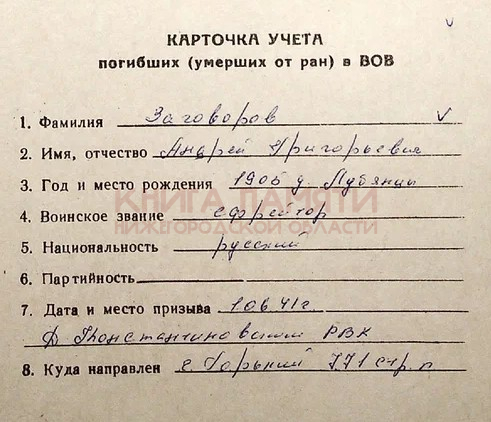 КАРТОЧКА УЧЕТА
погибших (умерших от ран) в ВОВ
1. Фамилия Заговоров
2. Имя, отчество Андрей Григорьевич
3. Год и место рождения 1905 д Лубянцы
КНИГА ПАМЯТИ
4. Воинское звание ефрейтор
НИЖЕГОРОДСКОЙ ОБЛАСТИ
5. Национальность русский
6. Партийность
7. Дата и место призыва 10641г.
Д Константиновским РВК
8. Куда направлен г. Горький 771 стр. п